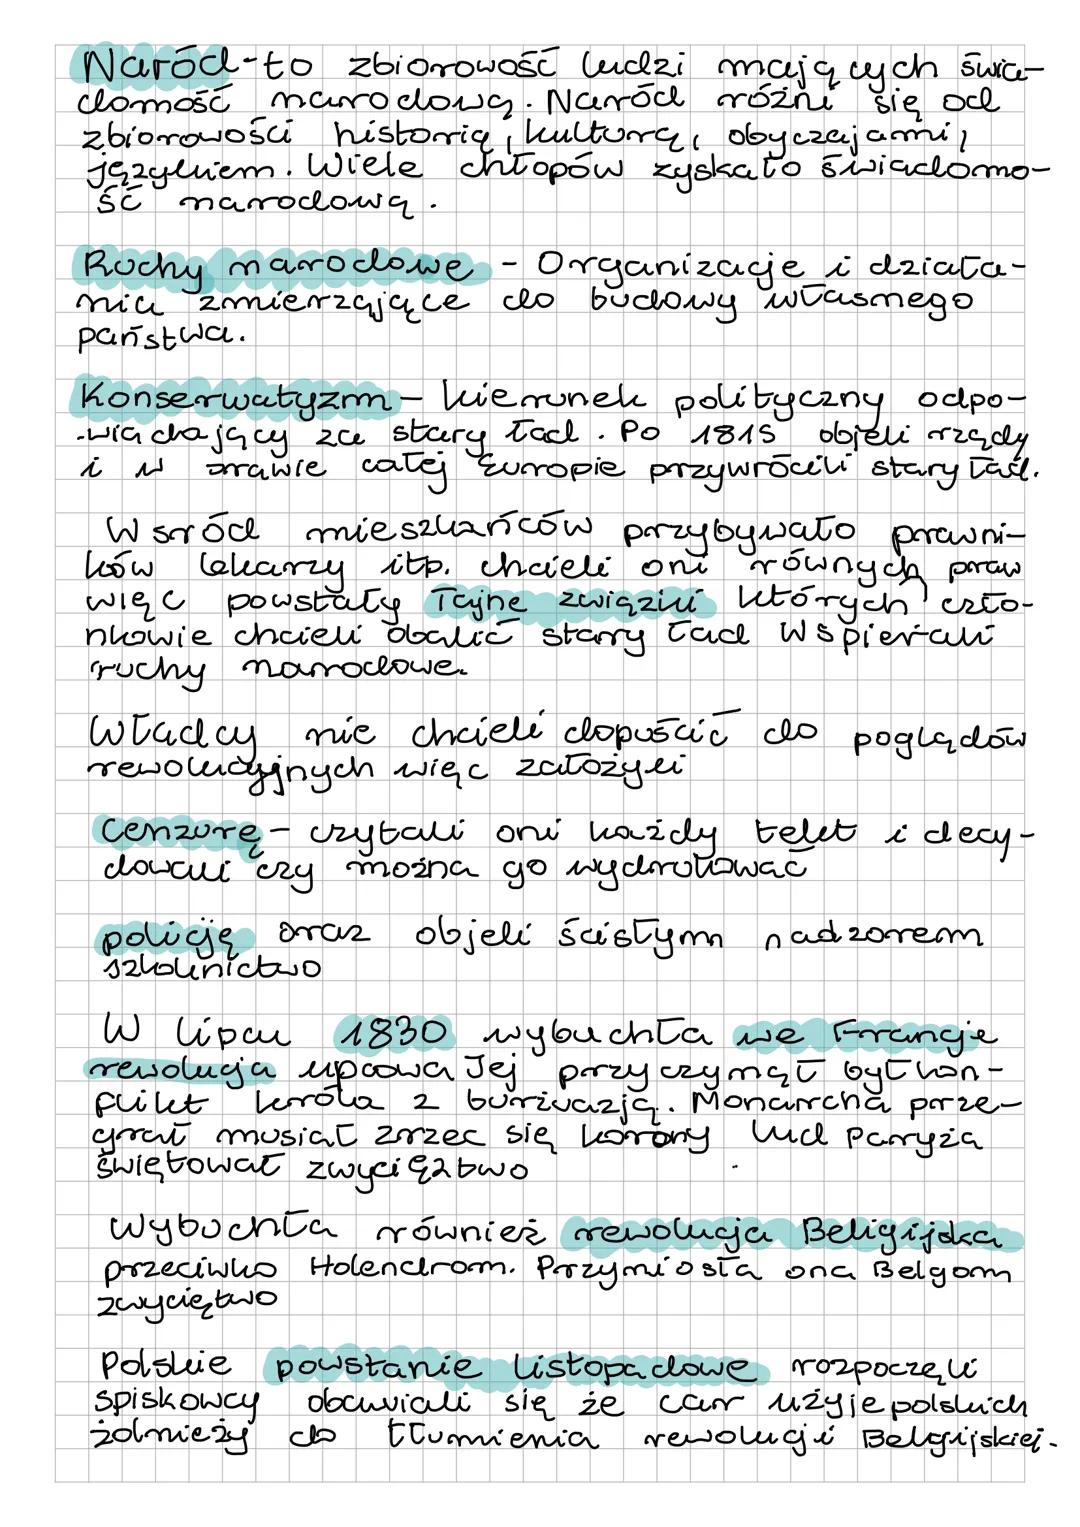 Naród - to zbiorowość ludzi mających świa-
domość narodową. Naród różni się od
zbiorowości historią, kulturą, obyczajami,
językiem. Wiele chłopów zyskało świadomo-
ść narodową.
Ruchy narodowe - Organizacje i działa-
nia zmierzające do budowy własnego
państwa.
Konserwatyzm - kierunek polityczny odpo-
wiadający za stary ład. Po 1815 objeli rządy
i w prawie całej Europie przywrócili stary ład.
Wsród mieszkańców przybywało prawni-
ków lekarzy itp. chcieli oni równych praw
więc powstały Tajne związki których czło-
nkowie chcieli obalić stary ład Wspierali
ruchy narodowe.
Władcy nie chcieli dopuścić do poglądów
rewolucyjnych więc założyli
Cenzurę - czytali oni każdy tekst i decy-
dowali czy można go wydrukować
policję oraz objeli ścisłym nadzorem
szkolnictwo
W lipcu 1830 wybuchła we Francji
rewolucja lipcowa Jej przyczyną był kon-
flikt króla z burżuazją. Monarcha prze-
grał musiał zrzec się korony lud Paryża
świętował zwycięztwo
Wybuchła również rewolucja Beligijska
przeciwko Holendrom. Przyniosła ona Belgom
zwycięstwo
Polskie powstanie listopadowe rozpoczęli
spiskowcy obawiali się że car użyje polskich
żołnieży do tłumienia rewolucji Belgijskiej.